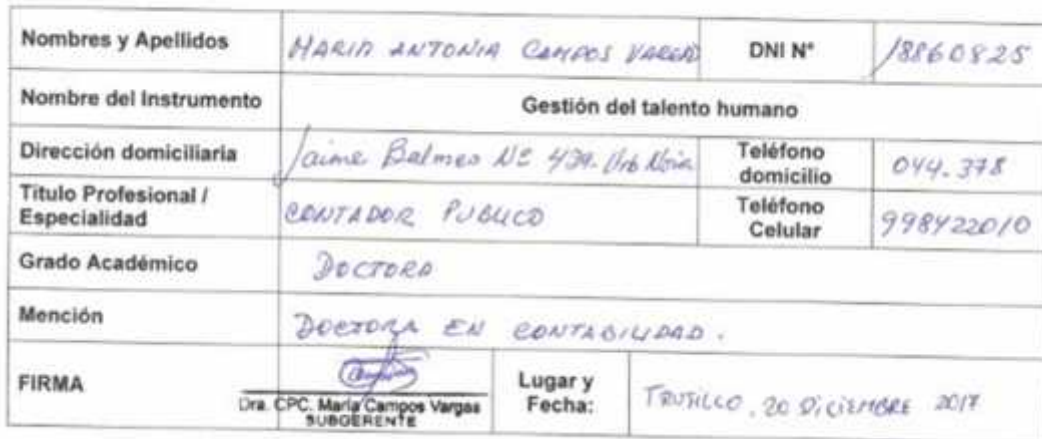 Nombres y Apellidos MARIA ANTONIA CAMPOS VARGAS DNI N° 18860825
Nombre del Instrumento Gestión del talento humano
Dirección domiciliaria Jaime Balmes Nº 439. Urb Teléfono domicilio 044.378
Título Profesional / Especialidad CONTADOR PUBLICO Teléfono Celular 998422010
Grado Académico DOCTORA
Mención DOCTORA EN CONTABILIDAD.
FIRMA Lugar y Fecha: TRUJILLO, 20 DICIEMBRE 2017
Dra. CPC. María Campos Vargas
SUBGERENTE